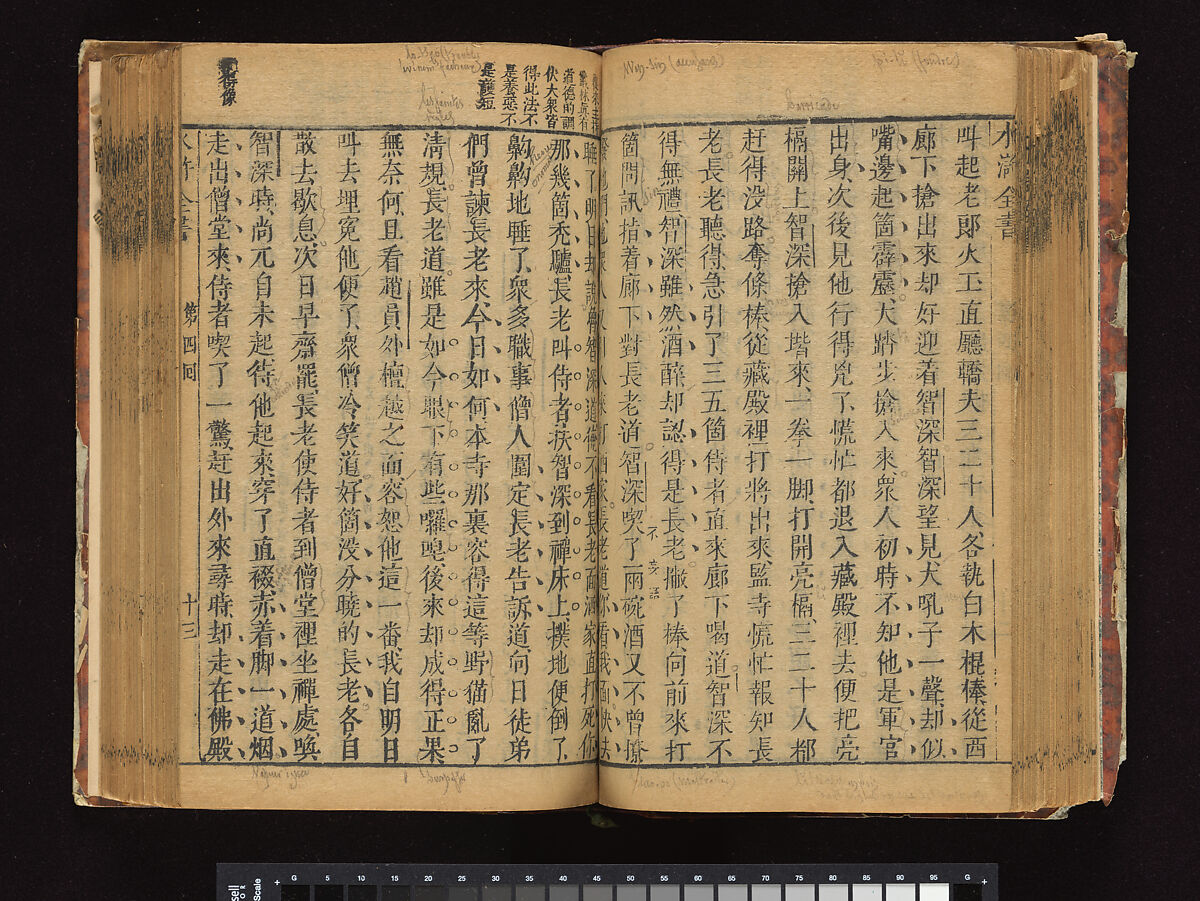 水滸全書
叫起老郎火工直廳轎夫三二十人各執白木棍棒從西
廊下搶出來却好迎着智深智深望見大吼了一聲却似
嘴邊起箇霹靂大踏步搶入來衆人初時不知他是軍官
出身次後見他行得兇了慌忙都退入藏殿裡去便把亮
槅關上智深搶入堦來一拳一脚打開亮槅三二十人都
赶得没路奪條棒從藏殿裡打將出來監寺慌忙報知長
老長老聽得急引了三五箇侍者直來廊下喝道智深不
得無禮智深雖然酒醉却認得是長老撇了棒向前來打
箇問訊指着廊下對長老道智深喫了兩碗酒又不曾撩
不妄語
睡了明日却說魯智深道俺不看長老面洒家直打死你
那幾箇禿驢長老叫侍者扶智深到禪床上撲地便倒了
齁齁地睡了衆多職事僧人圍定長老告訴道向日徒弟
們曾諫長老來今日如何本寺那裏容得這等野猫亂了
清規長老道雖是如今眼下有些囉唣後來却成得正果
無奈何且看趙員外檀越之面容恕他這一番我自明日
叫去埋冤他便了衆僧冷笑道好箇没分曉的長老各自
散去歇息次日早齋罷長老使侍者到僧堂裡坐禪處喚
智深時尚兀自未起待他起來穿了直裰赤着脚一道烟
走出僧堂來侍者喫了一驚赶出外來尋時却走在佛殿
道德的謂
伏大衆皆
得此法不
是養惡不
是護短
水滸全書
第四回
十三